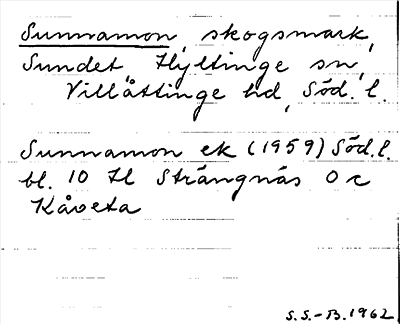 Sunnamon, skogsmark,
Sundet Hyltinge sn,
Villåttinge hd, Söd. l.
Sunnamon ek (1959) Söd. l.
bl. 10 H Strängnäs O c
Kåveta
S.S.-B. 1962